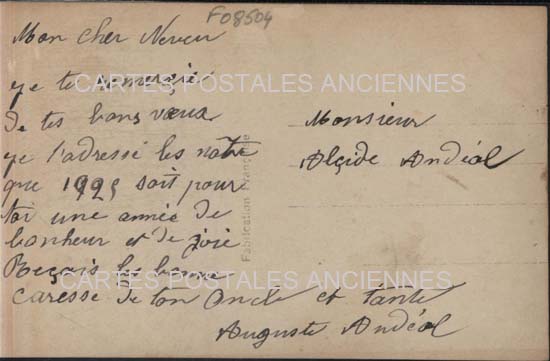 F08504
Mon cher Neveu
je te remercie
de tes bons vœux
je t'adresse les notre
que 1925 soit pour
toi une année de
bonheur et de joie
Reçois les bonne
caresse de ton Oncle et tante
Auguste Andéol
Monsieur
Alçide Andéol
Fabrication Française
CARTES POSTALES ANCIENNES
CARTES POSTALES ANCIENNES
CARTES POSTALES ANCIENNES